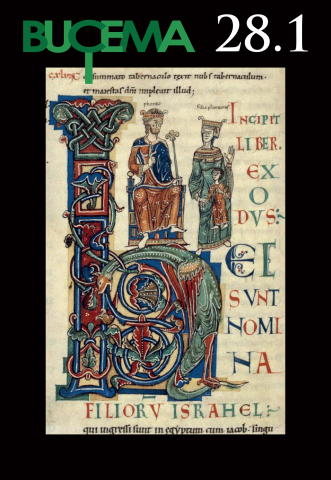 BUCEMA 28.1
summato tabernaculo texit nubes tabernaculum.
et maiestas dñi impleuit illud;
pharao
filia pharaonis
INCIPIT
LIBER.
EX
O
DVS:
EC
SVNT
NOMI
NA
FILIORV ISRAHEL:
qui ingressi sunt in egyptum cum iacob. singu